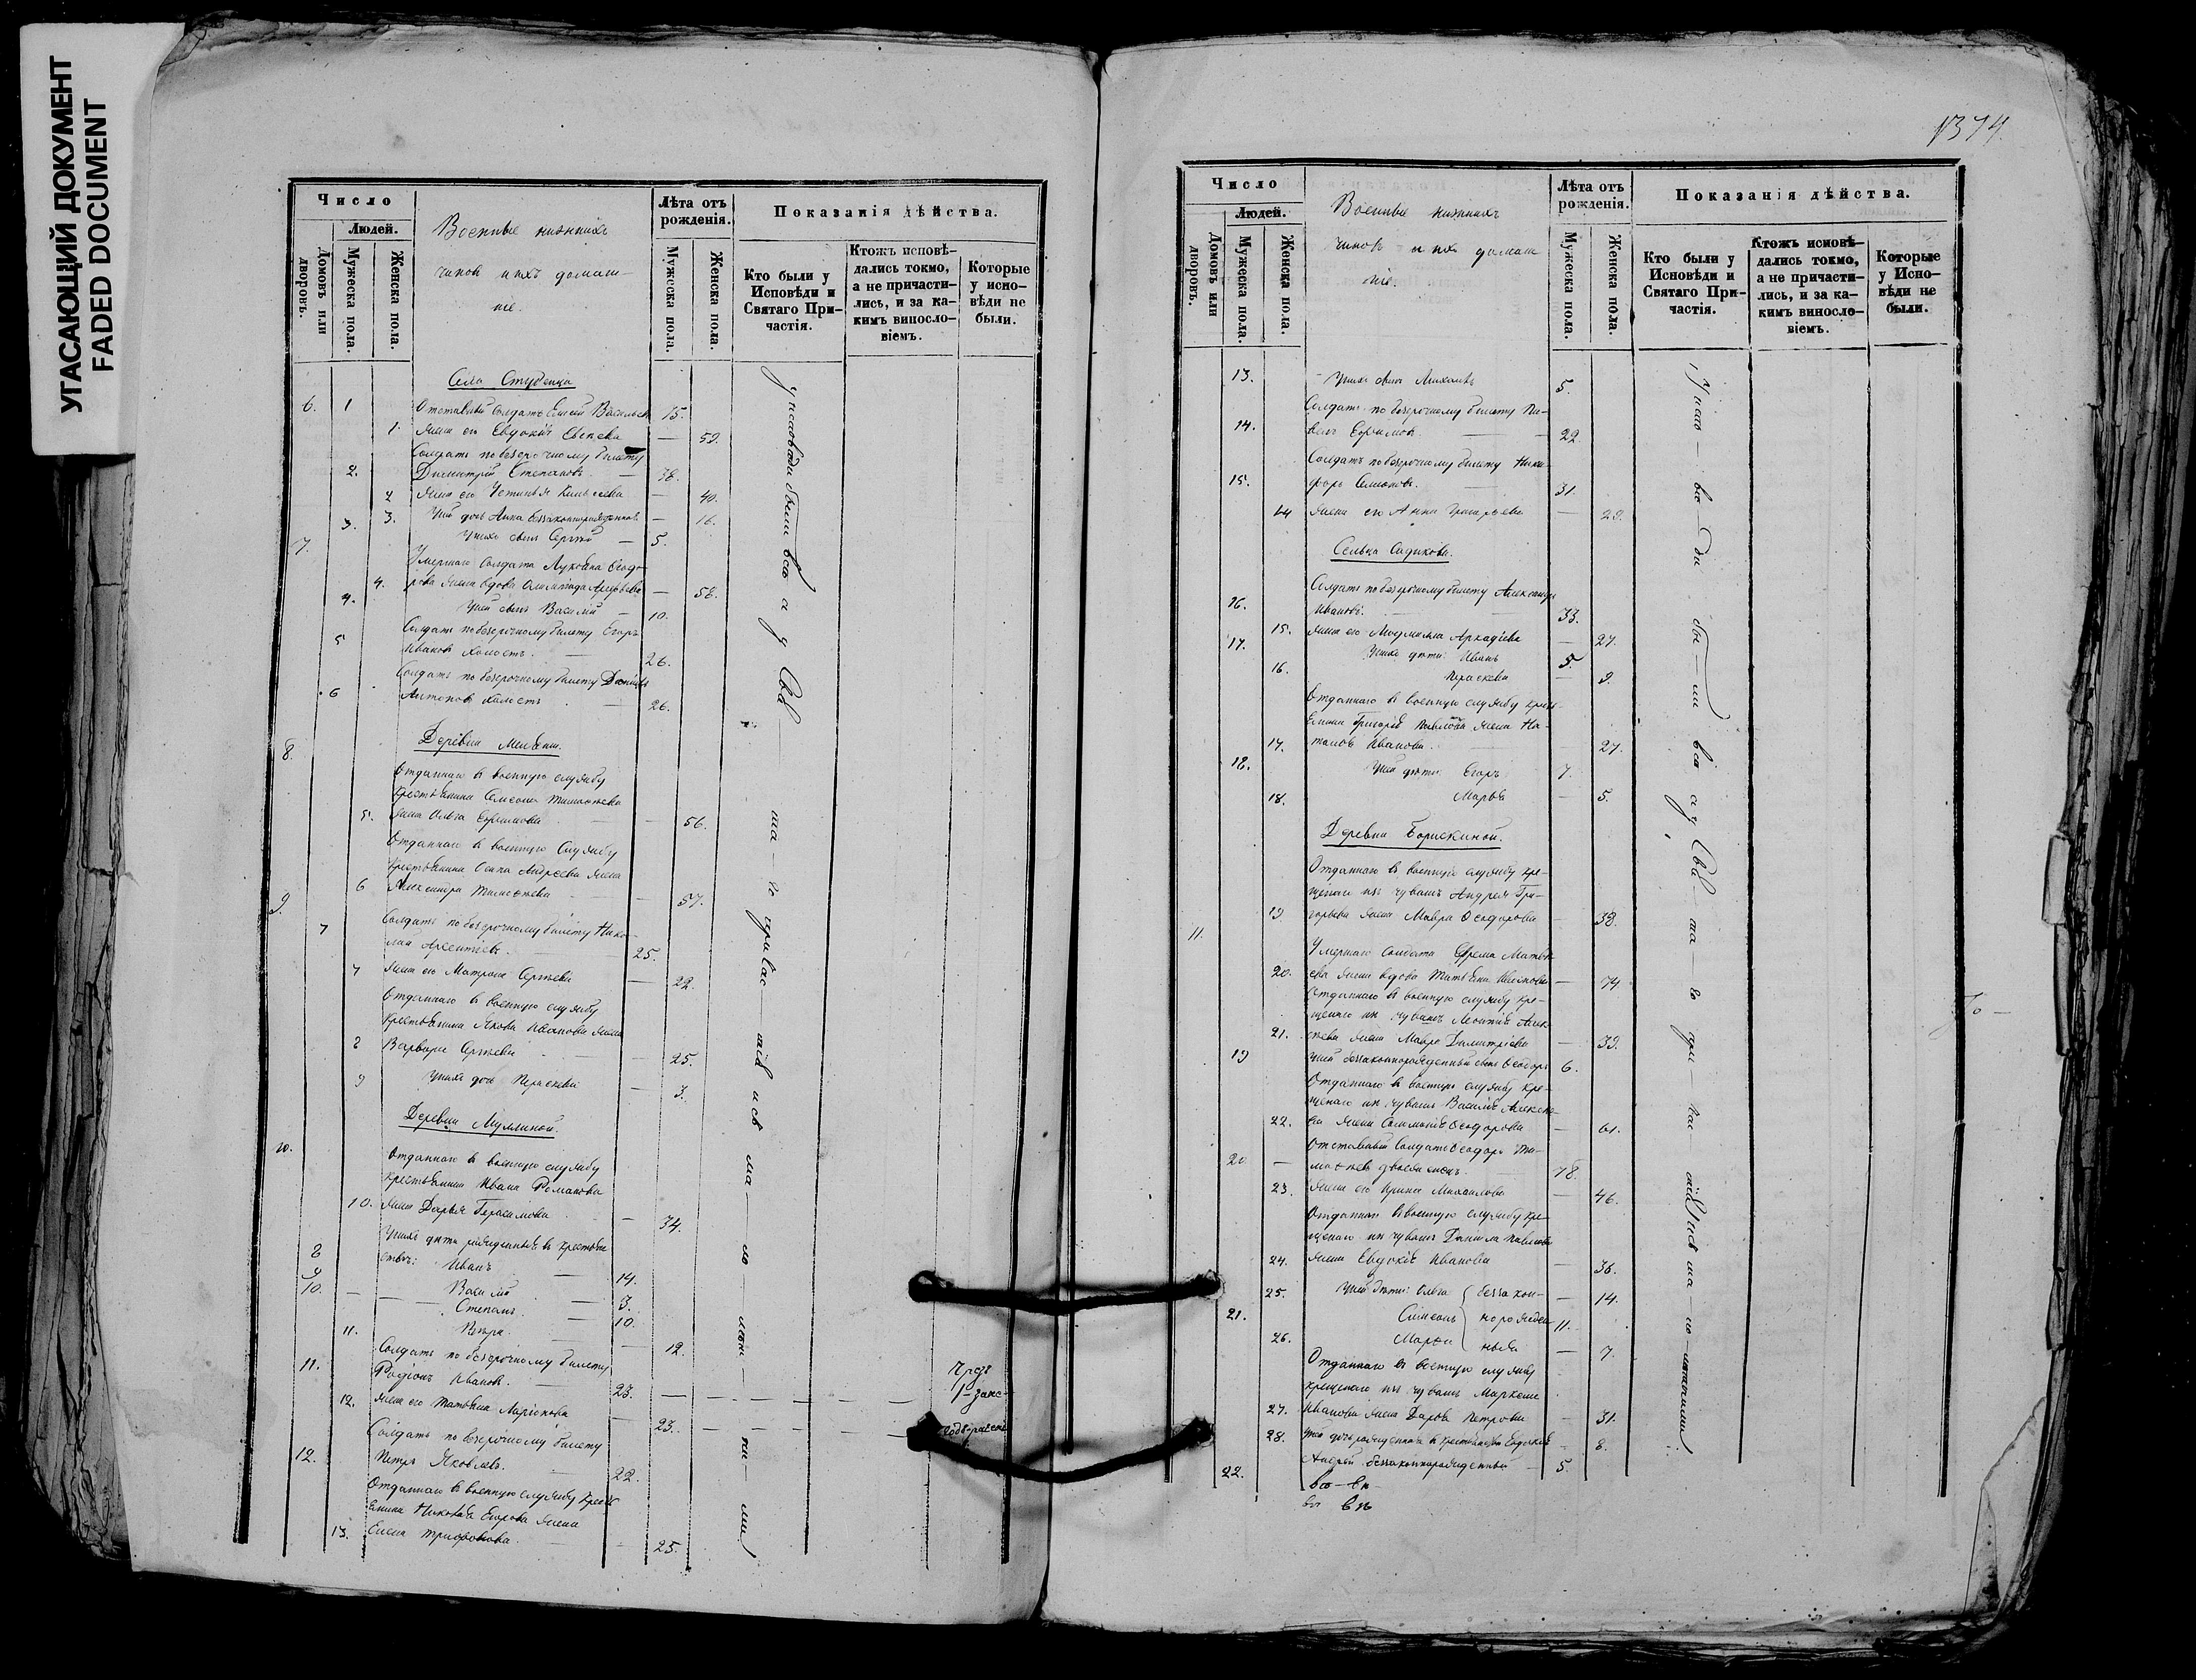 УГАСАЮЩИЙ ДОКУМЕНТ
FADED DOCUMENT
Число
Людей.
Домовъ или дворовъ.
Мужеска пола.
Женска пола.
Военные нижнихъ
чиновъ и ихъ домаш-
ніе.
Лѣта отъ рожденія.
Мужеска пола.
Женска пола.
Показанія дѣйства.
Кто были у Исповѣди и Святаго При-частія.
Ктожъ исповѣ-дались токмо, а не причасти-лись, и за ка-кимъ винословіемъ.
Которые у испо-вѣди не были.
Села Студенца
6. 1 Отставный солдатъ Елисей Васильевъ 75.
1. жена его Евдокія — 59.
Солдатъ по безсрочному билету
2. Димитрій Степановъ — 38.
2 жена его Устинья — 40.
3. Уней дочь Анна беззаконнорожденная — 16.
3. Унихъ сынъ Сергѣй — 5.
7. Умершаго солдата Ѳеодо-
4. рова жена вдова Олимпіада — 58.
4. Уней сынъ Василій — 10.
Солдатъ по безсрочному билету Егоръ
5 Ивановъ холостъ. — 26.
Солдатъ по безсрочному билету Даніилъ
6 Антоновъ холостъ — 26.
8. Деревни
Отданнаго въ военную службу
крестьянина Семена Тимоѳеева
5. жена Ольга Ефимова — 56.
Отданнаго въ военную службу
крестьянина Осипа Андреева жена
6 Александра Тимоѳеева — 57.
9. Солдатъ по безсрочному билету Нико-
7 лай Арсентіевъ. 25.
7 жена его Матрона Сергѣева — 22.
Отданнаго въ военную службу
крестьянина Якова Иванова жена
8 Варвара Сергѣева — 25.
9 Унихъ дочь Параскева — 3.
Деревни Муллиной.
10. Отданнаго въ военную службу
крестьянина Ивана Романова
10. жена Дарья Герасимова — 34.
Унихъ дѣти рожденные въ крестьян-
8 ствѣ: Иванъ — 14.
9 Василій — 3.
10. Степанъ — 10.
11. — 12.
Солдатъ по безсрочному билету
11. Родіонъ Ивановъ. — 23.
12. жена его Татьяна Ларіонова — 23.
Солдатъ по безсрочному билету
12. Петръ Яковлевъ. — 22.
Отданнаго въ военную службу кресть-
янина Николая Егорова жена
13. Елена Трифонова. — 25.
У исповѣди были всѣ а у Свя-та-го причас-тія
1374.
Число
Людей.
Домовъ или дворовъ.
Мужеска пола.
Женска пола.
Военные нижнихъ
чиновъ и ихъ домаш
ніе.
Лѣта отъ рожденія.
Мужеска пола.
Женска пола.
Показанія дѣйства.
Кто были у Исповѣди и Святаго При-частія.
Ктожъ исповѣ-дались токмо, а не причасти-лись, и за ка-кимъ винословіемъ.
Которые у Испо-вѣди не были.
13. Унихъ сынъ Михаилъ 5.
Солдатъ по безсрочному билету Па-
14. велъ Ефимовъ. — 22.
Солдатъ по безсрочному билету Ники-
15. форъ Семеновъ. 31.
14 жена его Анна Григорьева — 29.
Сельца Садикова.
Солдатъ по безсрочному билету Александръ
16. Ивановъ. 33.
15. жена его Аркадіева — 27.
17. Унихъ дѣти: Иванъ 5.
16. Параскева — 9.
Отданнаго въ военную службу кресть-
янина Григорія Павлова жена На-
17. талья Иванова. — 27.
18. Уней дѣти: Егоръ 7.
18. Марья — 5.
Деревни Борискиной.
Отданнаго въ военную службу кре-
щенаго изъ чувашъ Андрея Гри-
19. горьева жена Мавра Ѳеодорова — 38.
11. Умершаго солдата Ефрема Матвѣ-
20. ева жена вдова Татьяна — 74
Отданнаго въ военную службу кре-
щенаго изъ чувашъ Леонтія Алек-
21. сѣева жена Мавра Димитріева — 39.
19 Уней беззаконнорожденный сынъ Ѳеодоръ 6.
Отданнаго въ военную службу кре-
щенаго изъ чувашъ Василія Алексѣе-
22. ва жена Ѳеодорова — 61.
Отставный солдатъ Ѳеодоръ Ти-
20 — моѳеевъ 78.
23. жена его Ирина Михаилова — 46.
Отданнаго въ военную службу кре-
щенаго изъ чувашъ Данила Павлова
24. жена Евдокія Иванова — 36.
25. Уней дѣти: Ольга беззакон- — 14.
21. Симеонъ норожден- 11.
26. Марѳа ные — 7.
Отданнаго въ военную службу
крещенаго изъ чувашъ
27. Иванова жена Дарья Петрова — 31.
28. Уней дочь рожденная въ крестьянствѣ Евдокія — 8.
22. Андрей беззаконнорожденный — 5.
Уиспо-вѣ-ди бы-ли всѣ а у Свя-та-го при-час-тія